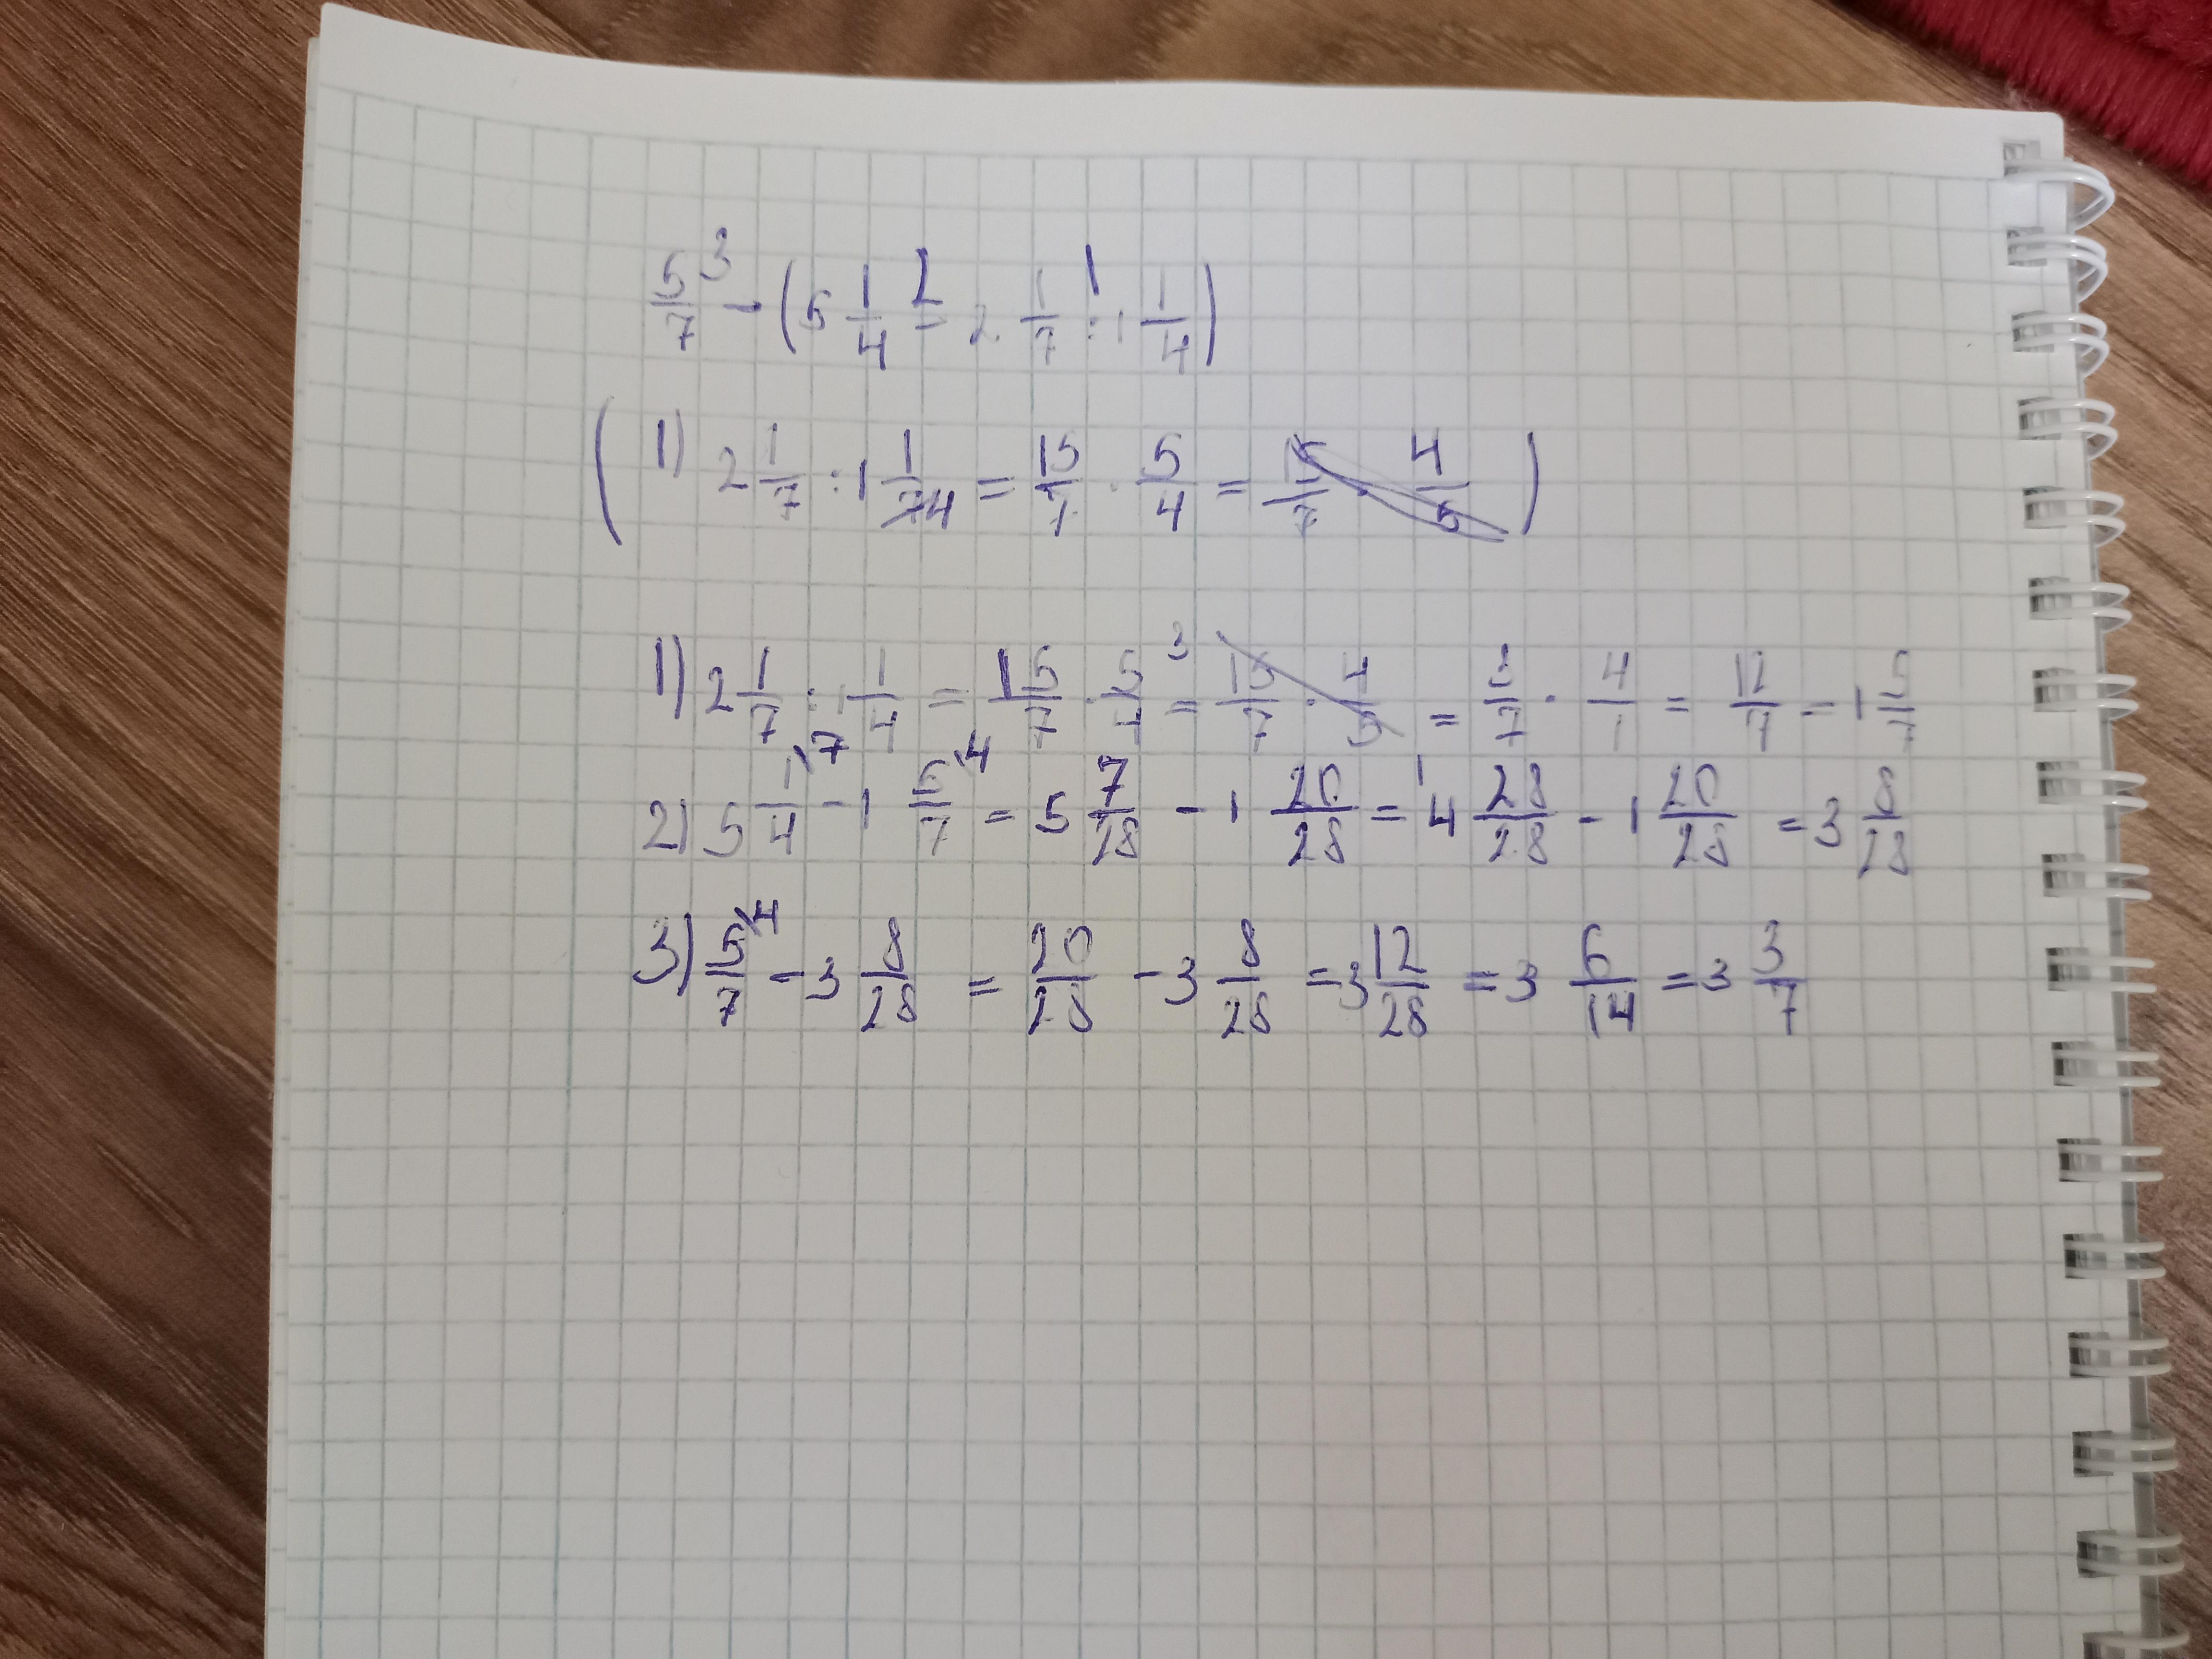 5/7 3 - (5 1/4 2 - 2 1/7 1 : 1 1/4)
(1) 2 1/7 : 1 1/74 = 15/7 · 5/4 = 15/7 · 4/5)
1) 2 1/7 : 1 1/4 = 15/7 · 5/4 = 3 15/7 · 4/5 = 3/7 · 4/1 = 12/7 = 1 5/7
2) 5 1/4 \7 - 1 5/7 \4 = 5 7/28 - 1 20/28 = 4 28/28 - 1 20/28 = 3 8/28
3) 5/7 \4 - 3 8/28 = 20/28 - 3 8/28 = 3 12/28 = 3 6/14 = 3 3/7